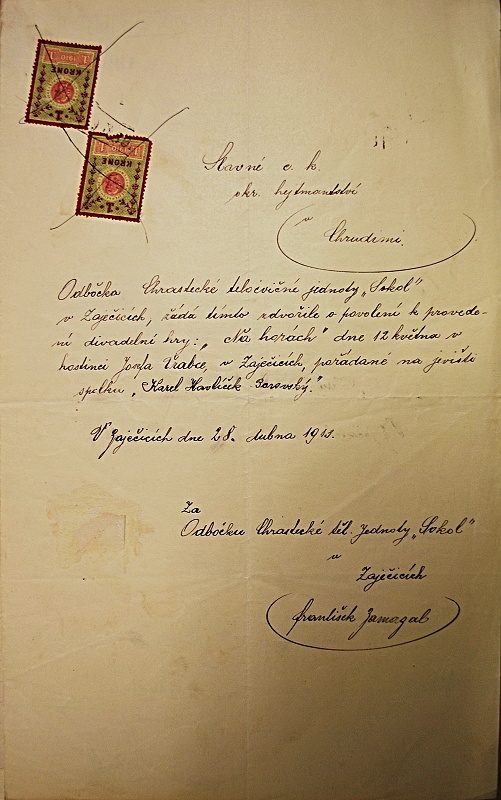 1 1910 1
KRONE
1
1 1910 1
KRONE
1
Slavné c. k.
okr. hejtmanství
v
Chrudimi.
Odbočka Chrastecké tělocvičné jednoty „Sokol"
v Zaječicích, žádá tímto zdvořile o povolení k provede-
ní divadelní hry: „Na horách" dne 12 května v
hostinci Josefa Vrabce, v Zaječicích, pořádané na jevišti
spolku „Karel Havlíček Borovský."
V Zaječicích dne 28. dubna 191
Za
Odbočku Chrastecké těl. jednoty „Sokol"
v
Zaječicích
František